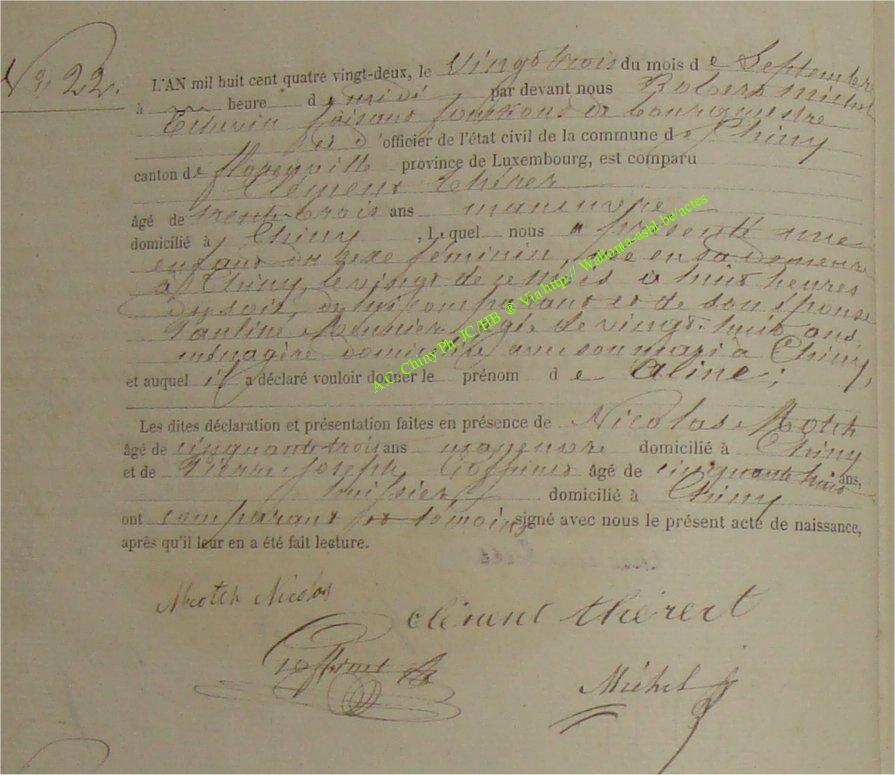 N° 22.
L'AN mil huit cent quatre vingt-deux, le Vingt trois du mois de Septembre
à une heure de midi par devant nous Robert Michel
Echevin faisant fonctions de bourgmestre
et d'officier de l'état civil de la commune de Chiny
canton de florenville province de Luxembourg, est comparu
Clément Thirer
âgé de trente-trois ans maneuvre
domicilié à Chiny, Lequel nous a présenté une
enfant du sexe féminin, née en sa demeure
à Chiny, le vingt de ce mois à huit heures
du soir, de lui comparant et de son épouse
Pauline Meunier âgée de vingt-huit ans,
ménagère domiciliée avec son mari à Chiny,
et auquel il a déclaré vouloir donner le prénom de Aline;
Les dites déclaration et présentation faites en présence de Nicolas Motch
âgé de cinquante trois ans maneuvre domicilié à Chiny
et de Pierre Joseph Goffinet âgé de cinquante huit ans,
huissier domicilié à Chiny
ont comparant et témoins signé avec nous le présent acte de naissance,
après qu'il leur en a été fait lecture.
Meotch Nicolas
clément thiérert
Goffinet
Michel
A.C. Chiny Ph JC/HB @ Via http://Wallonia-asbl.be/actes